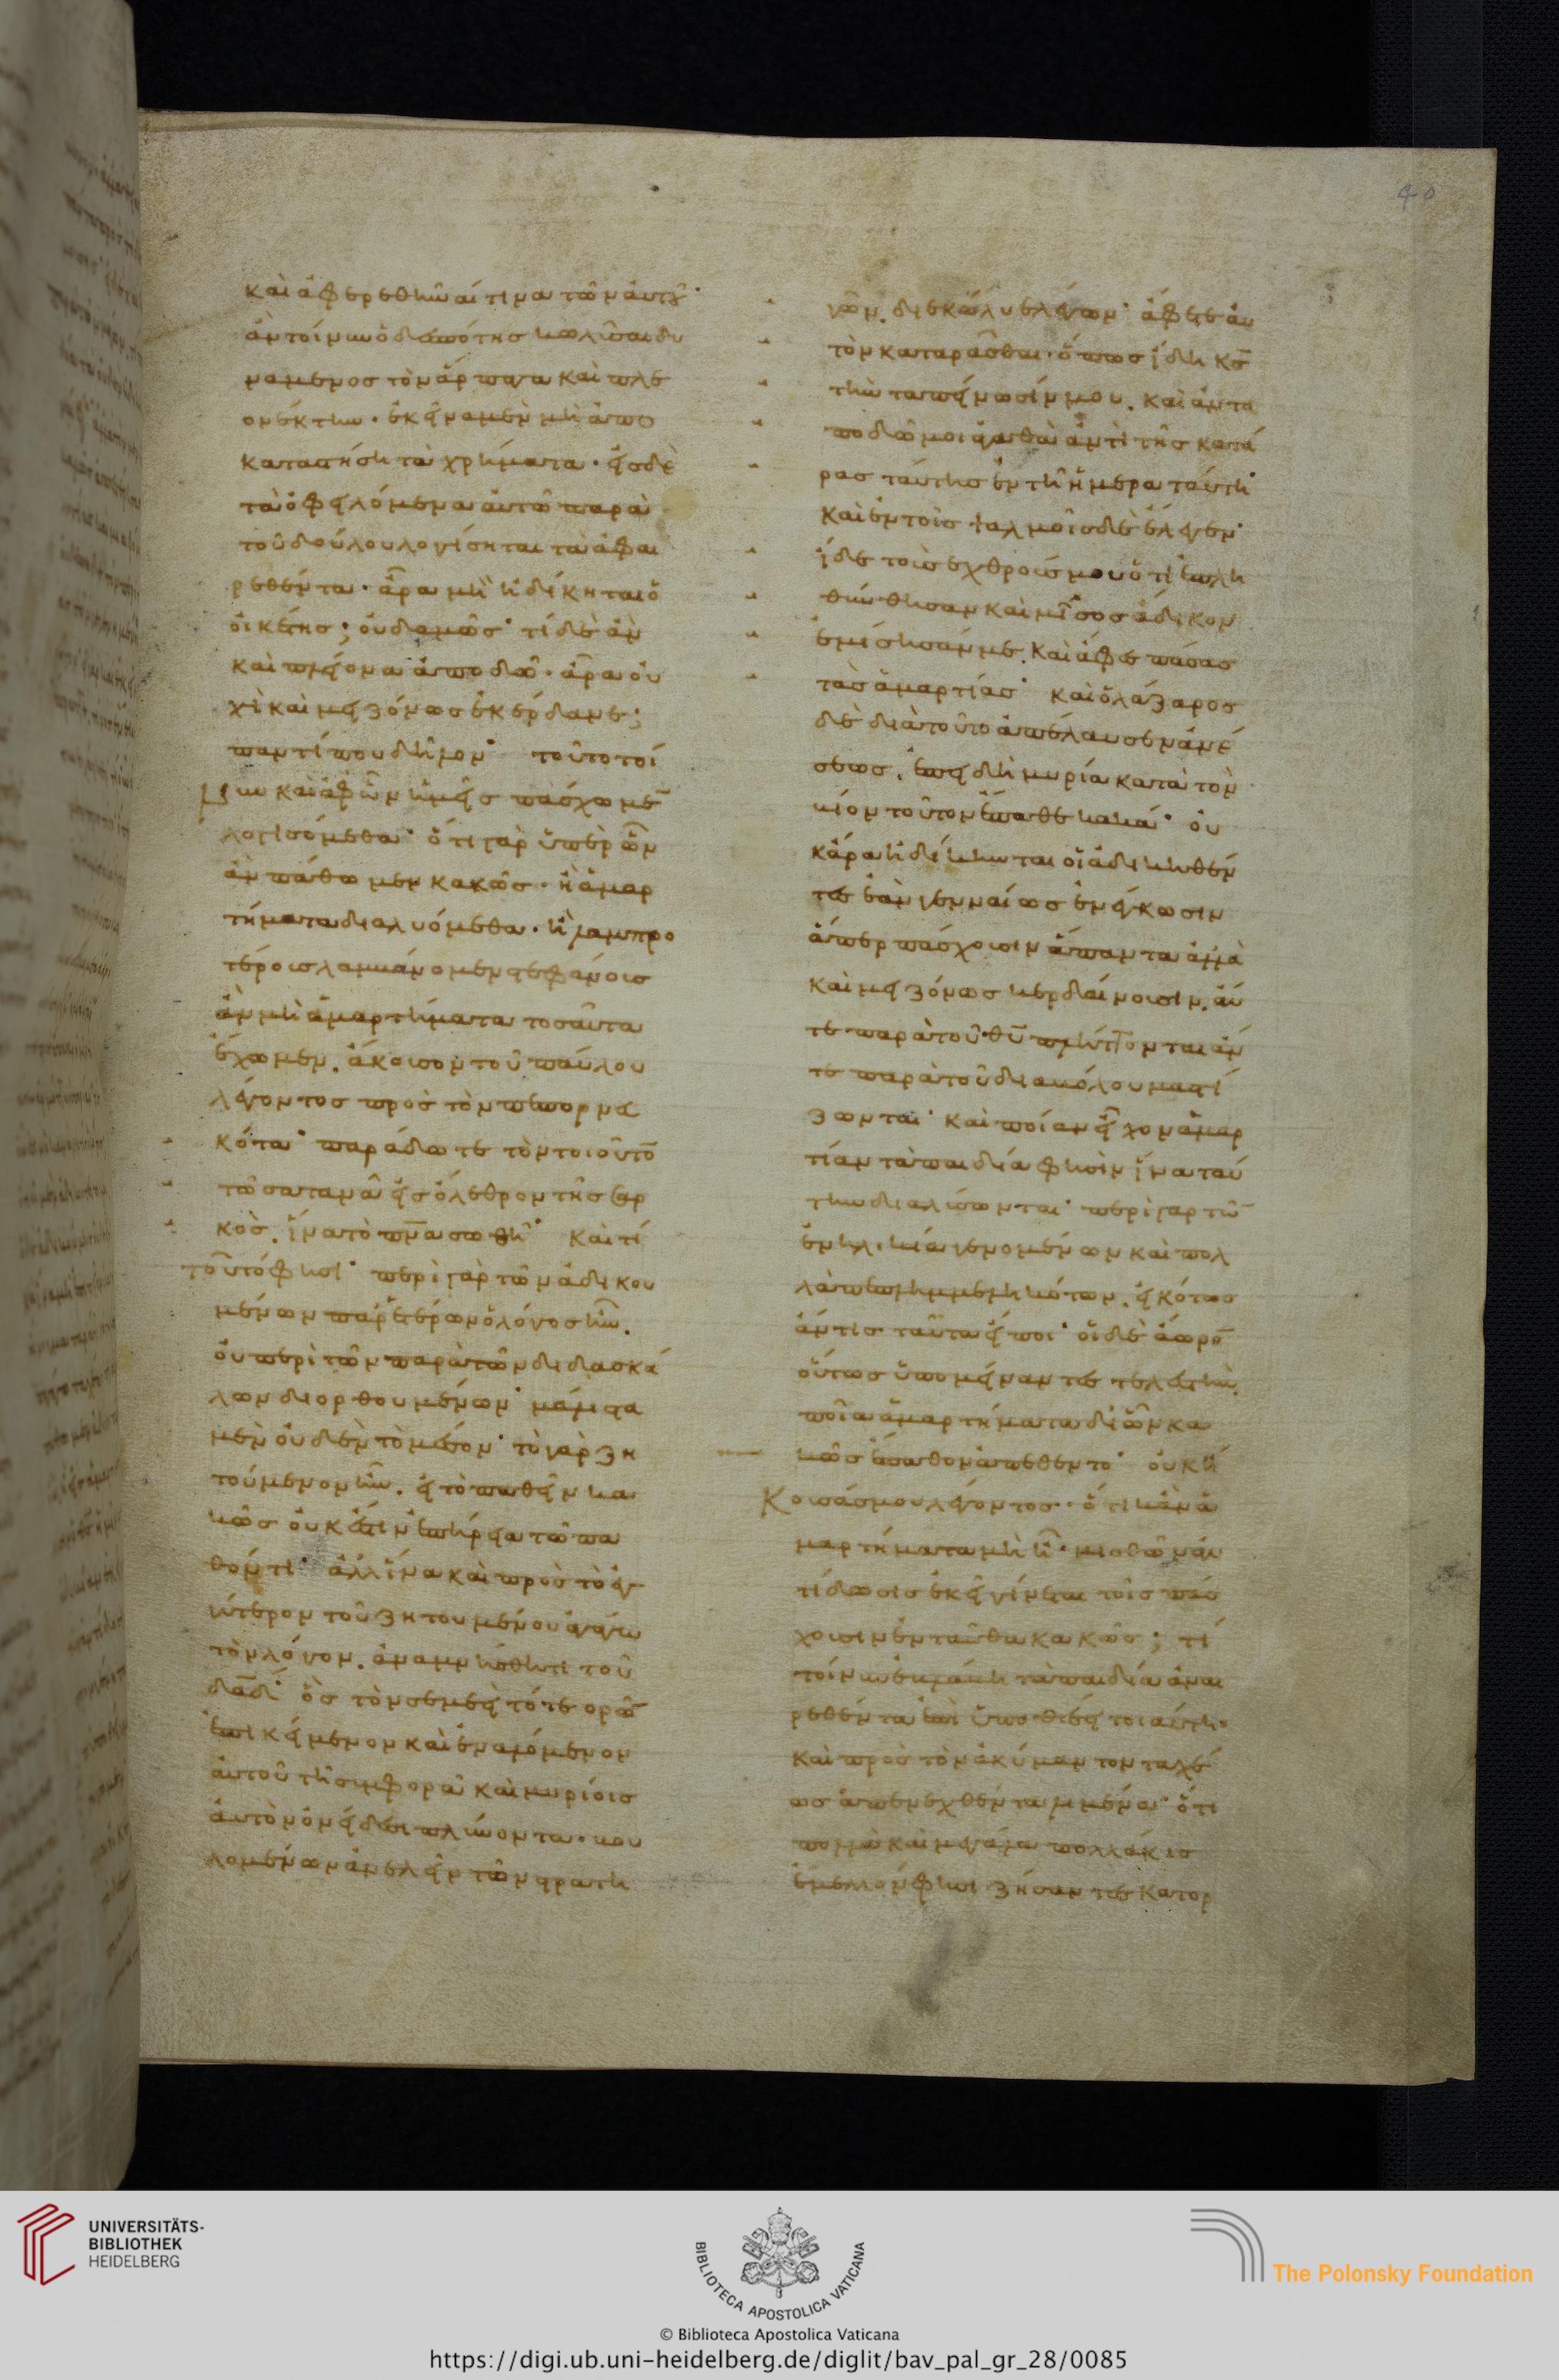 40
καὶ ἀφερεθῆναί τινα τῶν αὐτοῦ·
ἂν τοίνυν ὁ δεσπότης κωλῦσαι δυ
νάμενος τὸν ἅρπαγα καὶ πλε
ονέκτην· ἐκεῖνα μὲν μὴ ἀπο
καταστήση τὰ χρήματα· εἰς δὲ
τὰ ὀφειλόμενα αὐτῶ παρὰ
τοῦ δούλου λογίσηται τὰ ἀφαι
ρεθέντα· ἆρα μὴ ἠδίκηται ὁ
οἰκέτης; οὐδαμῶς· τί δὲ ἂν
καὶ πλείονα ἀποδῶ· ἆρα οὐ
χὶ καὶ μειζόνως ἐκέρδανε;
παντί που δῆλον· τοῦτο τοί
νυν καὶ ἀφ' ὧν ἡμεῖς πάσχομε̅
λογισόμεθα· ὅτι γὰρ ὑπὲρ ὧν
ἂν πάθωμεν κακῶς· ἢ ἁμαρ
τήματα διαλυόμεθα· ἢ λαμπρο
τέροις λαμβάνομεν στεφάνοις
ἂν μὴ ἁμαρτήματα τοσαῦτα
ἔχωμεν. ἄκουσον τοῦ παύλου
λέγοντος πρὸς τὸν πεπορνευ
κότα· παράδωτε τὸν τοιοῦτο̅
τῶ σατανᾶ εἰς ὄλεθρον τῆς σαρ
κὸς. ἵνα τὸ πν̅α σωθῆ· καὶ τί
τοῦτό φησι· περὶ γὰρ τῶν ἀδικου
μένων παρ' ἑτέρων ὁ λόγος ἦν.
οὐ περὶ τῶν παρὰ τῶν διδασκά
λων διορθουμένων· μάλιστα
μὲν οὐδὲν τὸ μέσον· τὸ γὰρ ζη
τούμενον ἦν. εἰ τὸ παθεῖν κα
κῶς οὐκ ἔστιν ἐπήρεια τῶ πα
θόντι· ἀλλ' ἵνα καὶ πρὸς τὸ ἐγ
γύτερον τοῦ ζητουμένου ἀγάγω
τὸν λόγον. ἀναμνήσθητι τοῦ
δα̅δ· ὃς τὸν σεμεεὶ τότε ὁρῶ̅
ἐπικείμενον καὶ ἐναλόμενον
αὐτοῦ τῆ συμφορᾶ καὶ μυρίοις
αὐτὸν ὀνείδεσι πλύνοντα· βου
λομένων ἀνελεῖν τῶν στρατη
γῶν. διεκώλυε λέγων· ἄφετε αὐ
τὸν καταρᾶσθαι· ὅπως ἴδη κ̅ς
τὴν ταπείνωσίν μου. καὶ ἀντα
ποδῶ μοι ἀγαθὰ ἀντὶ τῆς κατά
ρας ταύτης ἐν τῆ ἡμέρα ταύτη·
καὶ ἐν τοῖς ψαλμοῖς δὲ ἔλεγεν·
ἴδε τοὺς ἐχθρούς μου ὅτι ἐπλη
θύνθησαν καὶ μῖσος ἄδικον
ἐμίσησάν με. καὶ ἄφες πάσας
τὰς ἁμαρτίας· καὶ ὁ λάζαρος
δὲ διὰ τοῦτο ἀπέλαυσεν ἀνέ
σεως. ἐπειδὴ μυρία κατὰ τὸν
βίον τοῦτον ἔπαθε κακά· οὐ
κ ἄρα ἠδίκηνται οἱ ἀδικηθέν
τες ἐὰν γενναίως ἐνέγκωσιν
ἅπερ πάσχουσιν ἅπαντα ἀλλὰ
καὶ μειζόνως κερδαίνουσιν. ἄν
τε παρὰ τοῦ θ̅υ πλήττονται ἄν
τε παρὰ τοῦ διαβόλου μαστί
ζωνται· καὶ ποίαν εἶχον ἁμαρ
τίαν τὰ παιδία φησὶν ἵνα ταύ
την διαλύσωνται· περὶ γὰρ τῶ̅
ἐν ἡλικία γενομένων καὶ πολ
λὰ πεπλημμεληκότων. εἰκότως
ἄν τις ταῦτα εἴποι· οἱ δὲ ἄωρο̅
οὕτως ὑπομείναντες τελευτὴν
ποῖα ἁμαρτήματα δι' ὧν κα
κῶς ἔπαθον ἀπέθεντο· οὐκ ἤ
κουσάς μου λέγοντος· ὅτι κἂν ἁ
μαρτήματα μὴ ἦ· μισθῶν ἀν
τίδωσις ἐκεῖ γίνεται τοῖς πάσ
χουσιν ἐνταῦθα κακῶς; τί
τοίνυν ἐβλάβη τὰ παιδία ἀναι
ρεθέντα ἐπὶ ὑποθέσει τοιαύτη·
καὶ πρὸς τὸν ἀκύμαντον ταχέ
ως ἀπενεχθέντα λιμένα· ὅτι
πολλὰ καὶ μεγάλα πολλάκις
ἔμελλόν φησι ζήσαντες κατορ
UNIVERSITÄTS-
BIBLIOTHEK
HEIDELBERG
BIBLIOTECA APOSTOLICA VATICANA
The Polonsky Foundation
© Biblioteca Apostolica Vaticana
https://digi.ub.uni-heidelberg.de/diglit/bav_pal_gr_28/0085